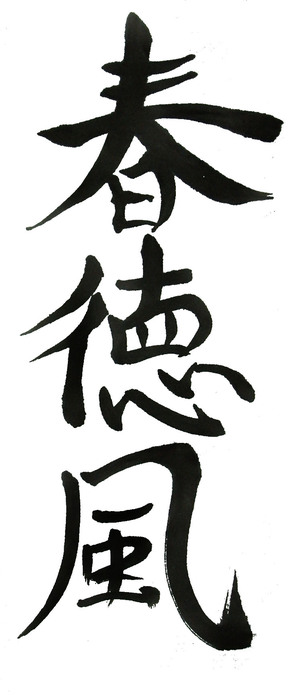 春徳風